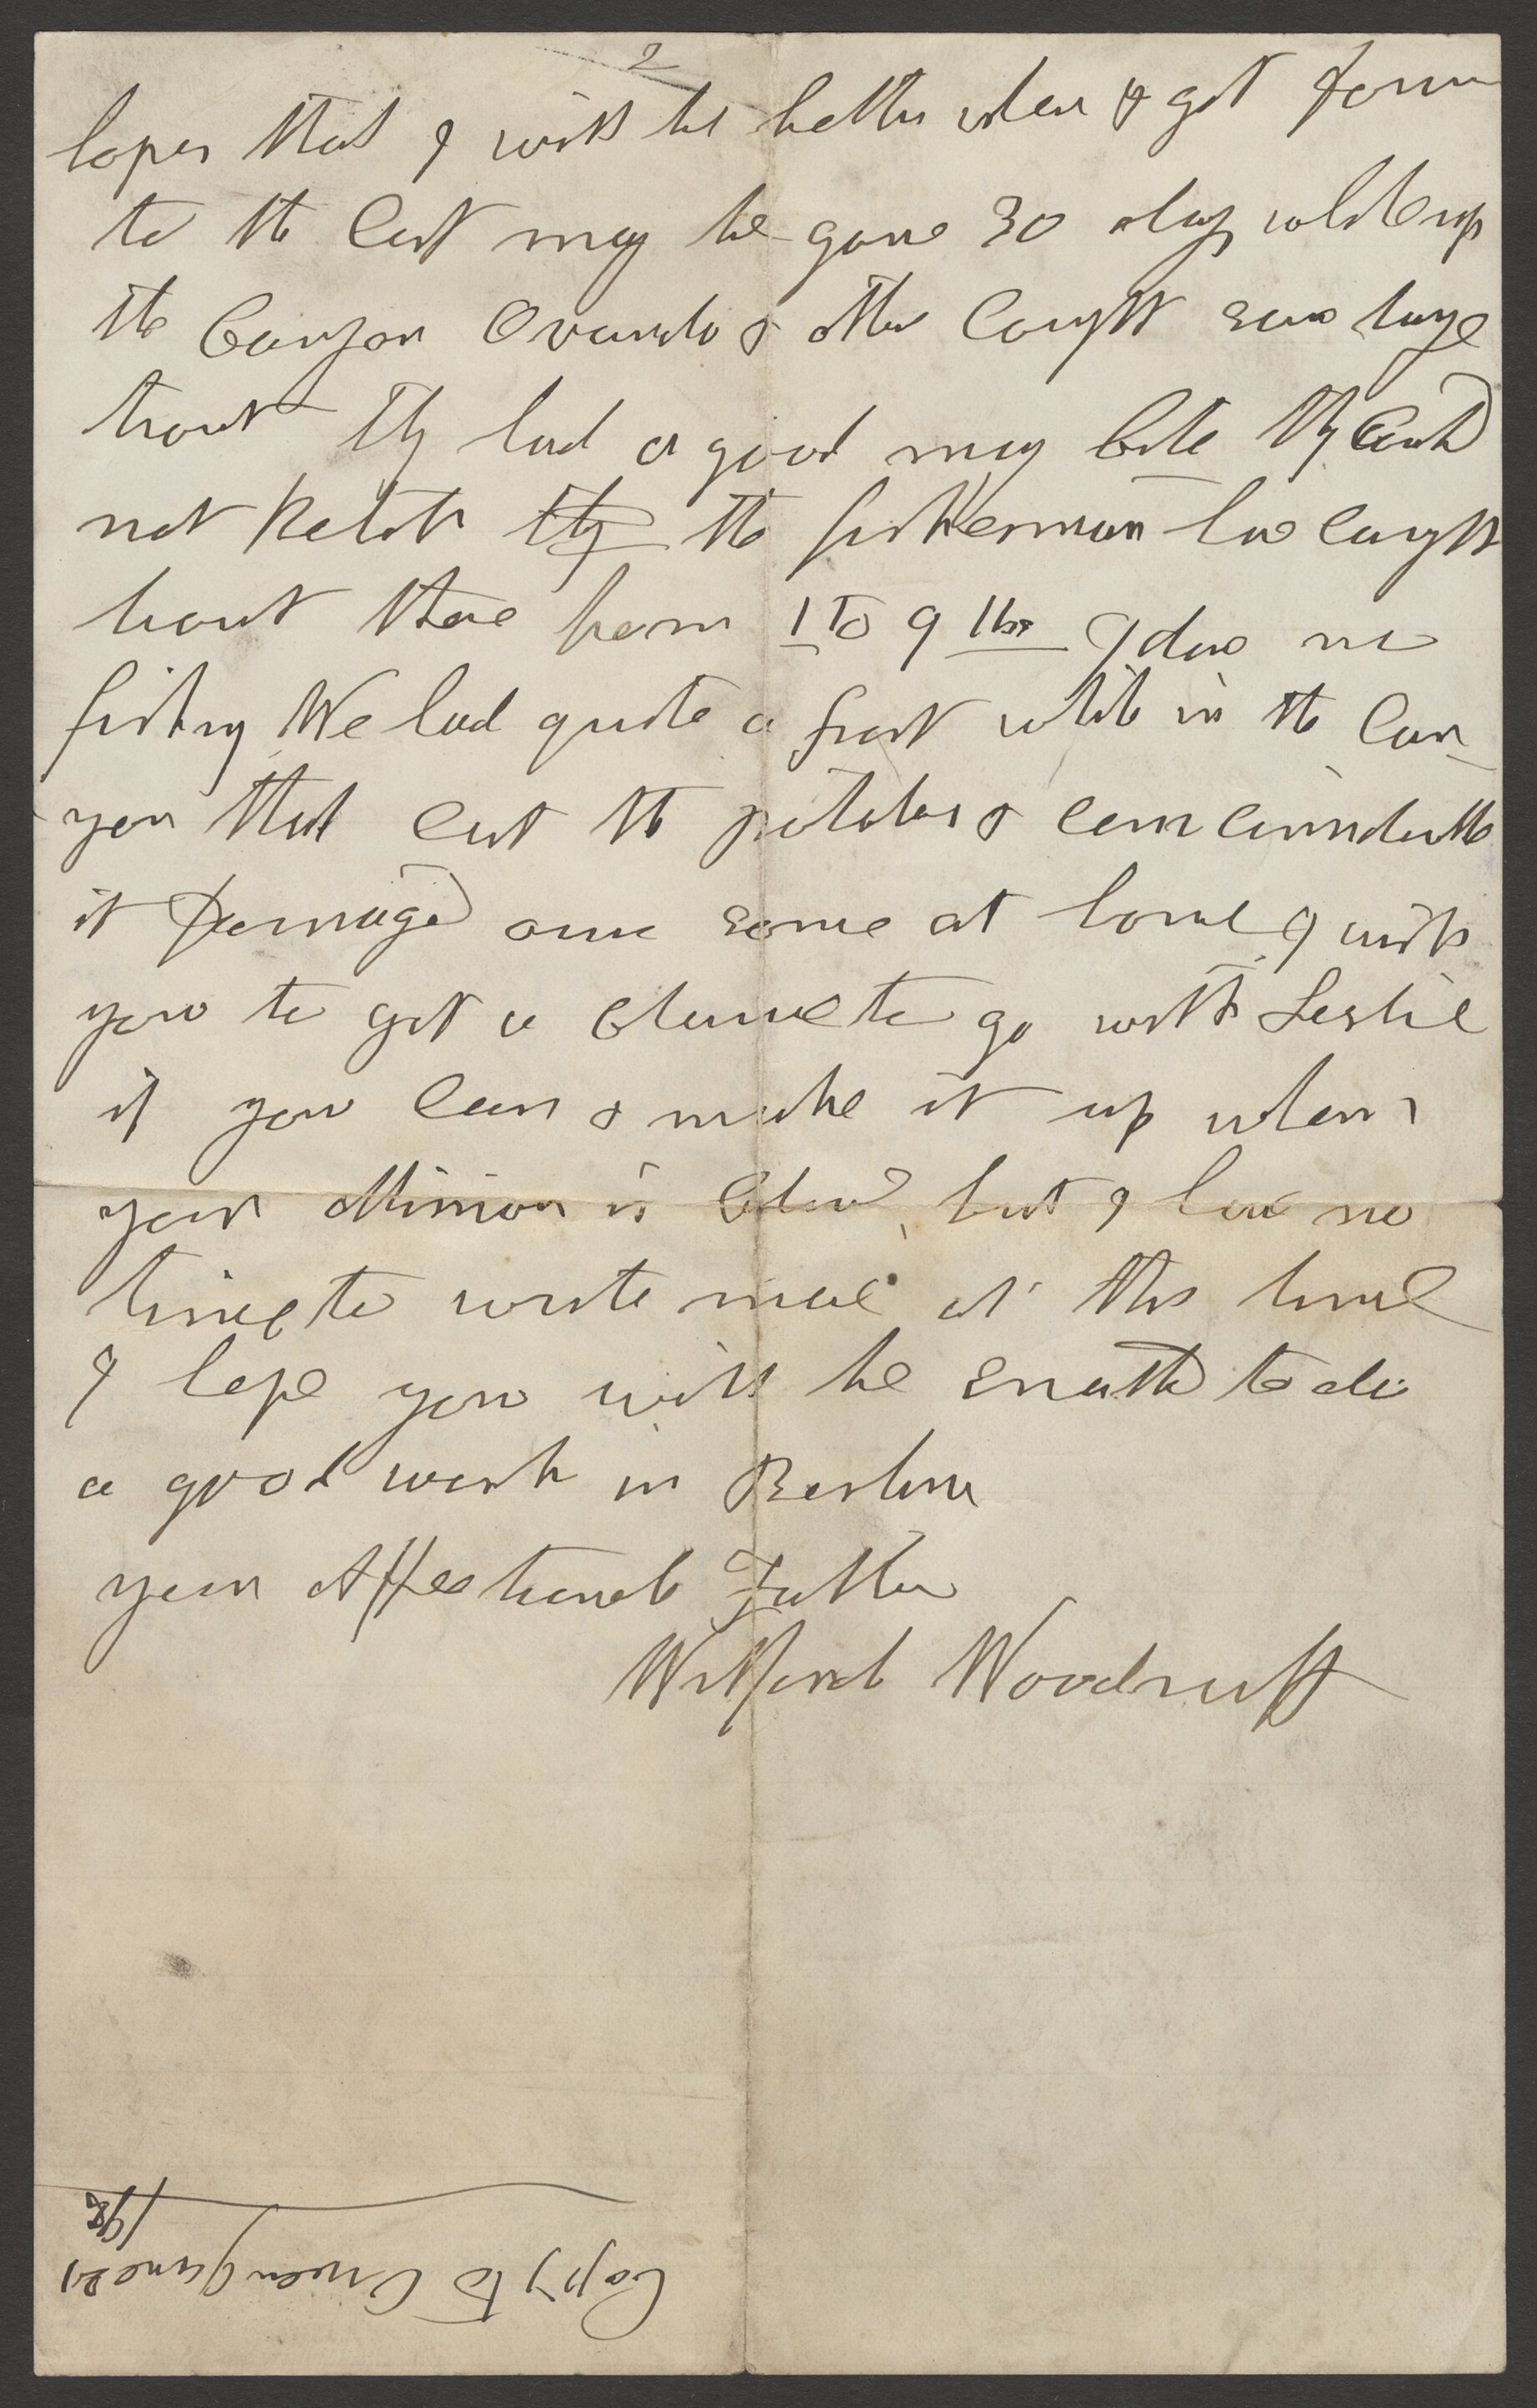 2
hopes that I will be better when I get down
to the Cost may be gone 30 days while up
the Canyon Ovando & other Caught some large
trout They had a good many bite They Could
not Ketch they the fisherman have Caught
trout there from 1 To 9 lbs I done no
fishing We had quite a frost while in the Can-
yon that cut the potatoes & corn considerable
it Damaged ours some at home I wish
you to get a chance to go with Leslie
if you Can & make it up when
your Mission is Closed, but I have no
time to write more at this time
I hope you will be enabled to do
a good work in
your Affectionate Father
Wilford Woodruff
Copy to Owen June 21
/98